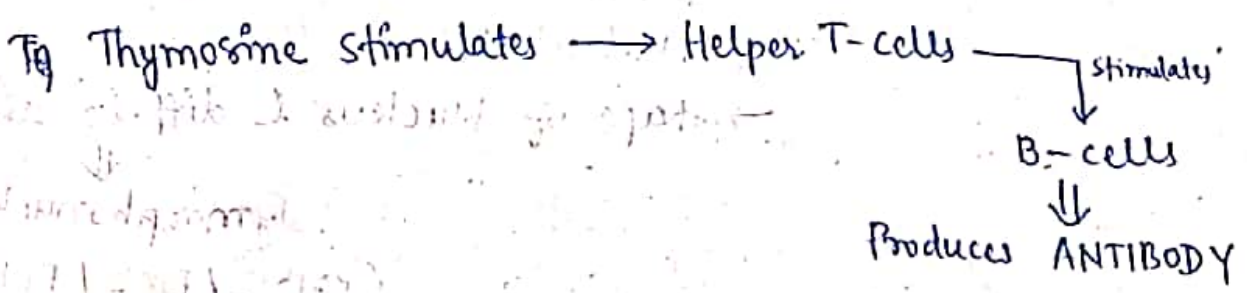 Thymosine stimulates → Helper T-cells
stimulates
B-cells
⇓
Produces ANTIBODY